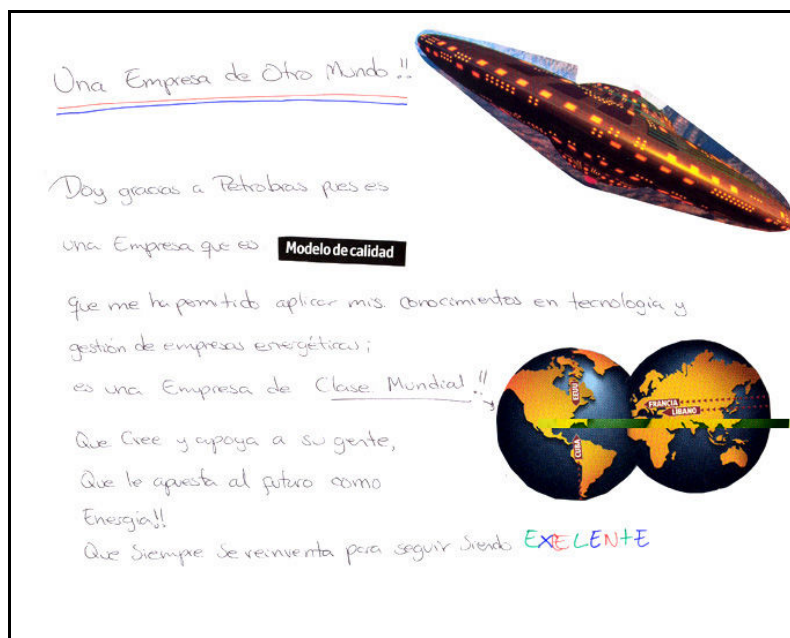 Una Empresa de Otro Mundo!!
Doy gracias a Petrobras pues es
una Empresa que es Modelo de calidad
que me ha permitido aplicar mis conocimientos en tecnología y
gestión de empresas energéticas;
es una Empresa de Clase Mundial!!
EEUU
FRANCIA
LÍBANO
CUBA
Que Cree y apoya a su gente,
Que le apuesta al futuro como
Energía!!
Que Siempre se reinventa para seguir siendo EXELENTE